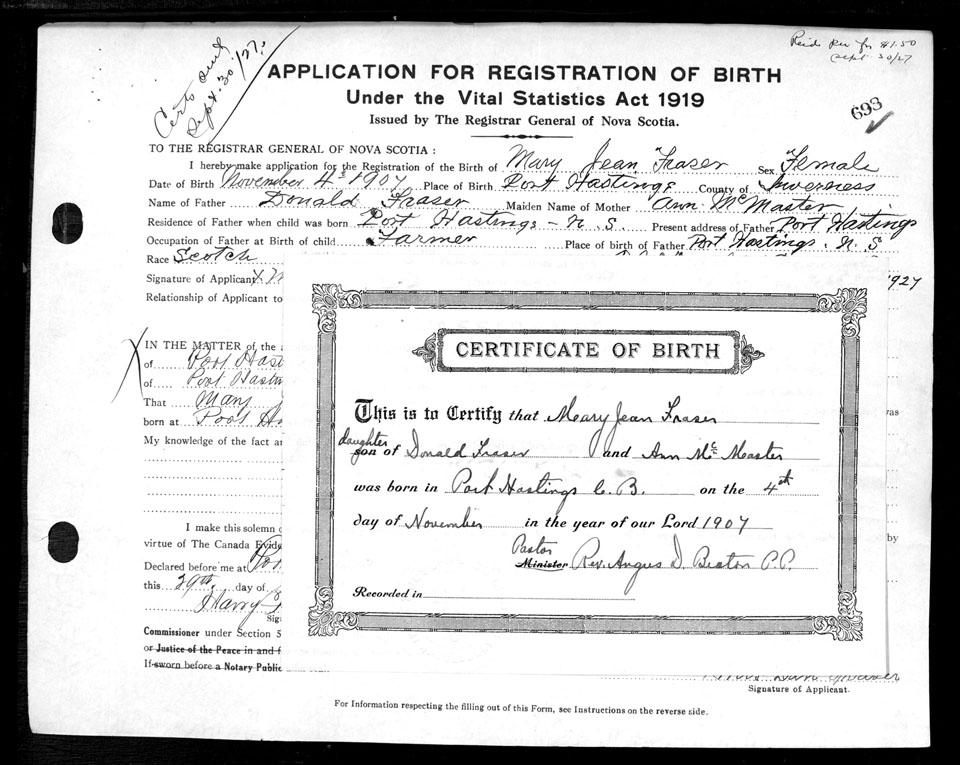 Certs sent
Sept. 30 '27.
Paid for $1.50
Sept 30/27
APPLICATION FOR REGISTRATION OF BIRTH
Under the Vital Statistics Act 1919
Issued by The Registrar General of Nova Scotia.
693
TO THE REGISTRAR GENERAL OF NOVA SCOTIA :
I hereby make application for the Registration of the Birth of Mary Jean Fraser Sex Female
Date of Birth November 4th 1907 Place of Birth Port Hastings County of Inverness
Name of Father Donald Fraser Maiden Name of Mother Ann McMaster
Residence of Father when child was born Port Hastings - N.S. Present address of Father Port Hastings
Occupation of Father at Birth of child Farmer Place of birth of Father Port Hastings. N. S
Race Scotch
Signature of Applicant 1927
Relationship of Applicant to
IN THE MATTER of the
of Port Hast
of Port Hastin
That Mary
born at Port Ha
My knowledge of the fact an
I make this solemn
virtue of The Canada Evide
Declared before me at
this 29th day of
Harry
Sig
Commissioner under Section 5
or Justice of the Peace in and f
If sworn before a Notary Public
CERTIFICATE OF BIRTH
This is to Certify that Mary Jean Fraser
daughter
son of Donald Fraser and Ann McMaster
was born in Port Hastings C. B. on the 4th
day of November in the year of our Lord 1907
Pastor
Minister Rev. Angus D. Beaton P.P.
Recorded in
was
by
Signature of Applicant.
For Information respecting the filling out of this Form, see Instructions on the reverse side.